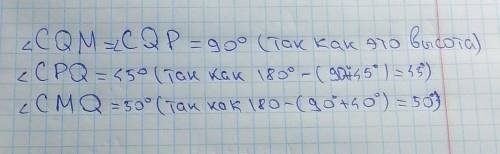 ∠CQM=∠CQP=90° (так как это высота)
∠CPQ=45° (так как 180°-(90°+45°)=45°)
∠CMQ=50° (так как 180-(90°+40°)=50°)